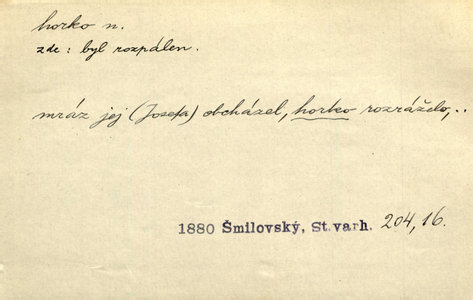 horko n.
zde: byl rozpálen.
mráz jej (Josefa) obcházel, horko rozráželo,..
1880 Šmilovský, St.varh. 204,16.